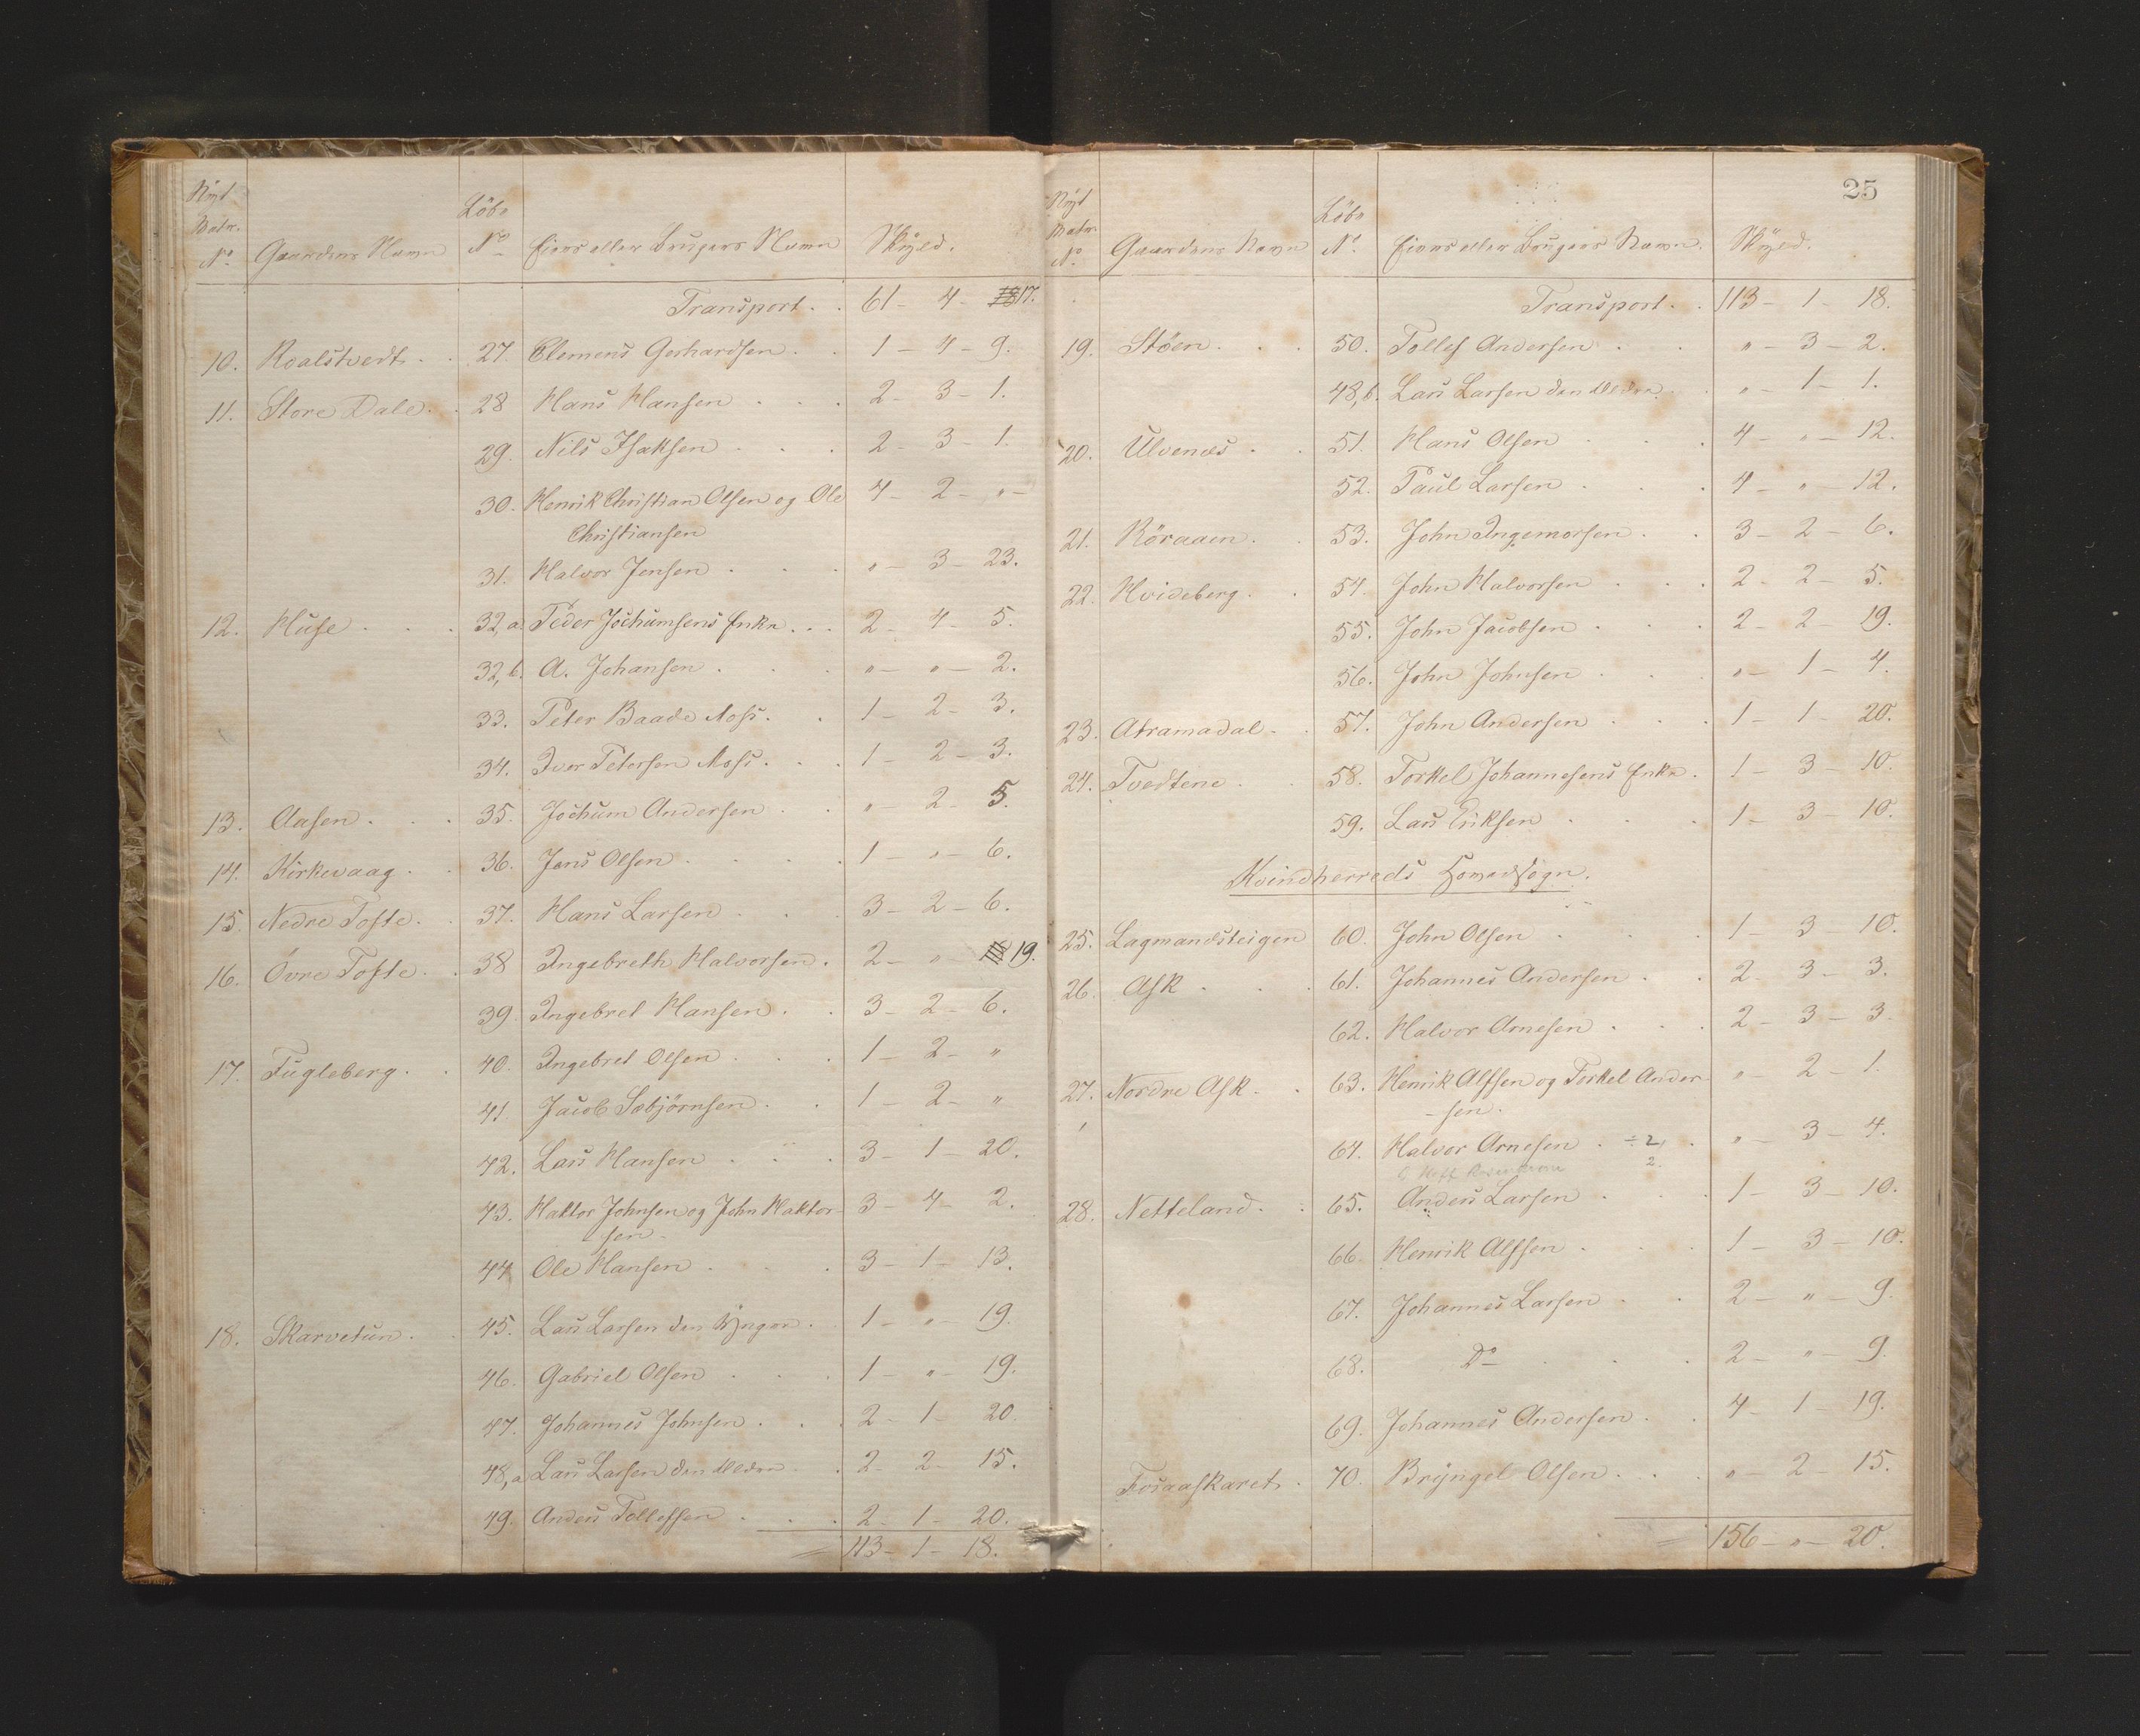 Nÿt
Matr.
No. Gaardens Navn
Löbe
No. Eiers eller Brugers Navn Skÿld.
Transport. . 61 - 4 - 17.
10. Roalstvedt. . 27. Clemens Gerhardsen . . 1 - 4 - 9.
11. Store Dale. . 28 Hans Hansen . . . 2 - 3 - 1.
29. Nils Isaksen . . . 2 - 3 - 1.
30. Henrik Christian Olsen og Ole 4 - 2 - " -
Christiansen
31. Halvor Jensen . . . " - 3 - 23.
12. Huse . . . 32,a. Peder Jochumsens Enke . . . 2 - 4 - 5.
32,b. A. Johansen . . . " - " - 2.
33. Peter Baade Moss. . 1 - 2 - 3.
34. Iver Petersen Moss. . . 1 - 2 - 3.
13. Aasen. . . 35. Jochum Andersen . . " - 2 - 5.
14. Kirkevaag. . 36. Jens Olsen . . . . 1 - " - 6.
15. Nedre Tofte. . 37. Hans Larsen . . . 3 - 2 - 6.
16. Övre Tofte. . 38 Ingebreth Halvorsen. 2 - " - 19.
39. Ingebret Hansen. . 3 - 2 - 6.
17. Fugleberg. . 40. Ingebret Olsen . . . 1 - 2 - "
41 Jacob Sæbjörnsen. . 1 - 2 - "
42. Lars Hansen . . . 3 - 1 - 20.
43. Haktor Johnsen og John Haktor- 3 - 4 - 2.
sen.
44 Ole Hansen . . . 3 - 1 - 13.
18. Skarvetun. . 45. Lars Larsen den Yngre. 1 - " - 19.
46. Gabriel Olsen . . . 1 - " - 19.
47. Johannes Johnsen . . . 2 - 1 - 20.
48,a Lars Larsen den Ældre . . 2 - 2 - 15.
49. Anders Tollefsen . . . 2 - 1 - 20.
= 113 - 1 - 18.
25
Nÿt
Matr.
No. Gaardens Navn
Löbe
No. Eiers eller Brugers Navn. Skÿld.
Transport. . 113 - 1 - 18.
19. Stöen. . . 50. Tollef Andersen . . " - 3 - 2.
48,b. Lars Larsen den Ældre. . " - 1 - 1.
20. Ulvenæs . . 51. Hans Olsen . . . 4 - " - 12.
52. Paul Larsen . . . 4 - " - 12.
21. Röraaen. . 53. John Ingemorsen. . 3 - 2 - 6.
22. Hvideberg. . 54. John Halvorsen . . . 2 - 2 - 5.
55. John Jacobsen . . . 2 - 2 - 19.
56. John Johnsen . . . " - 1 - 4.
23. Atramadal. . 57. John Andersen . . . 1 - 1 - 20.
24. Tvedtene . . 58. Torkel Johannesens Enke. 1 - 3 - 10.
59. Lars Eriksen . . . 1 - 3 - 10.
Kvindherreds Hovedsogn.
25. Lagmandsteigen 60. John Olsen . . . 1 - 3 - 10.
26. Ask . . . 61. Johannes Andersen . . 2 - 3 - 3.
62. Halvor Arnesen . . . 2 - 3 - 3.
27. Nordre Ask. . 63. Henrik Alfsen og Torkel Ander- " - 2 - 1.
-sen.
64. Halvor Arnesen . ÷ 2, . " - 3 - 4.
2.
28. Netteland. . 65. Anders Larsen . . . 1 - 3 - 10.
66. Henrik Alfsen . . . 1 - 3 - 10.
67. Johannes Larsen . . 2 - " - 9.
68. Do . . . 2 - " - 9.
69. Johannes Andersen . . 4 - 1 - 19.
Fosaaskaret. 70. Brÿngel Olsen . . . " - 2 - 15.
= 156 - " - 20.